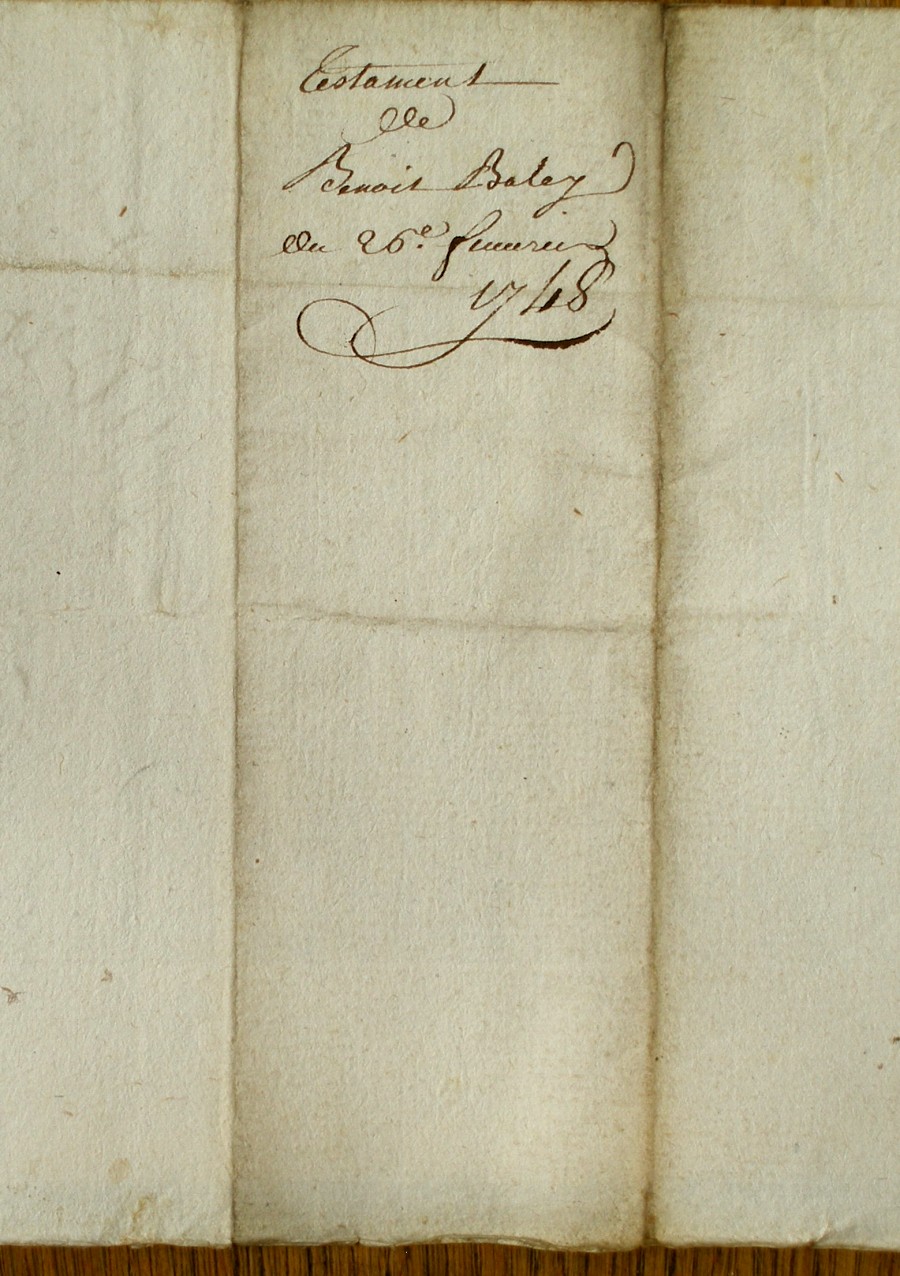 Testament
de
Benoit Baley
du 26.e feuurier
1748